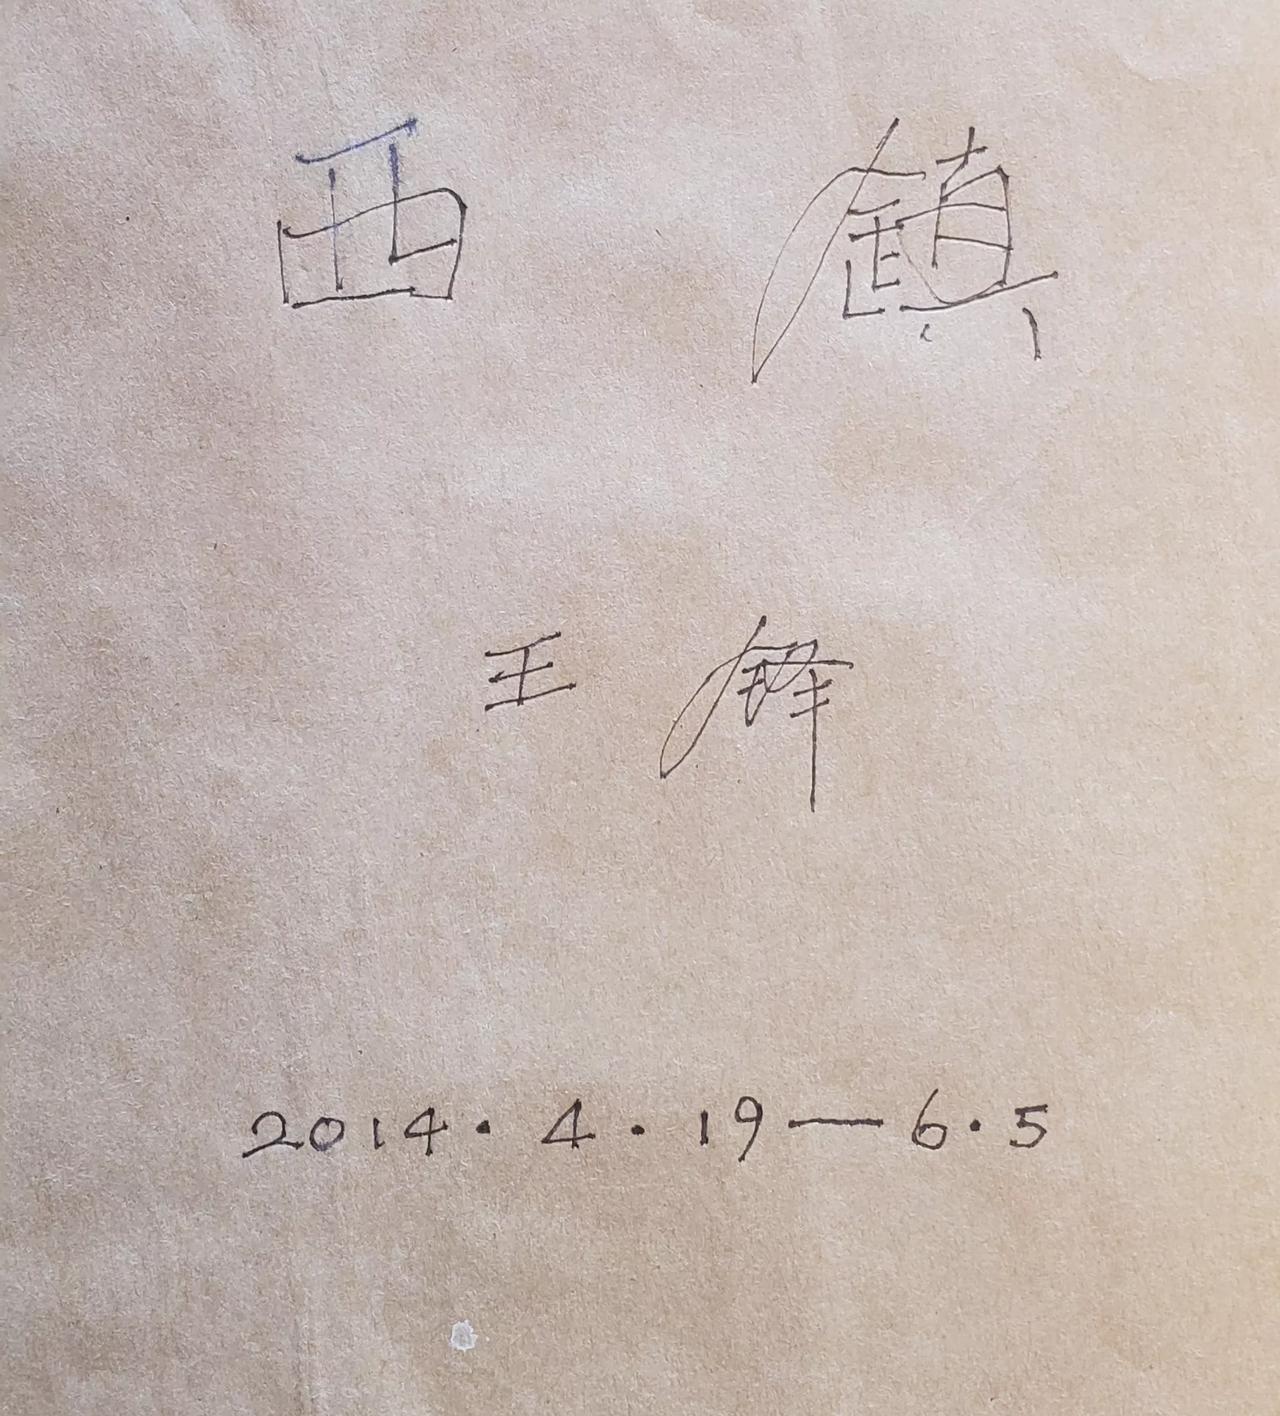 西镇
王锋
2014.4.19—6.5